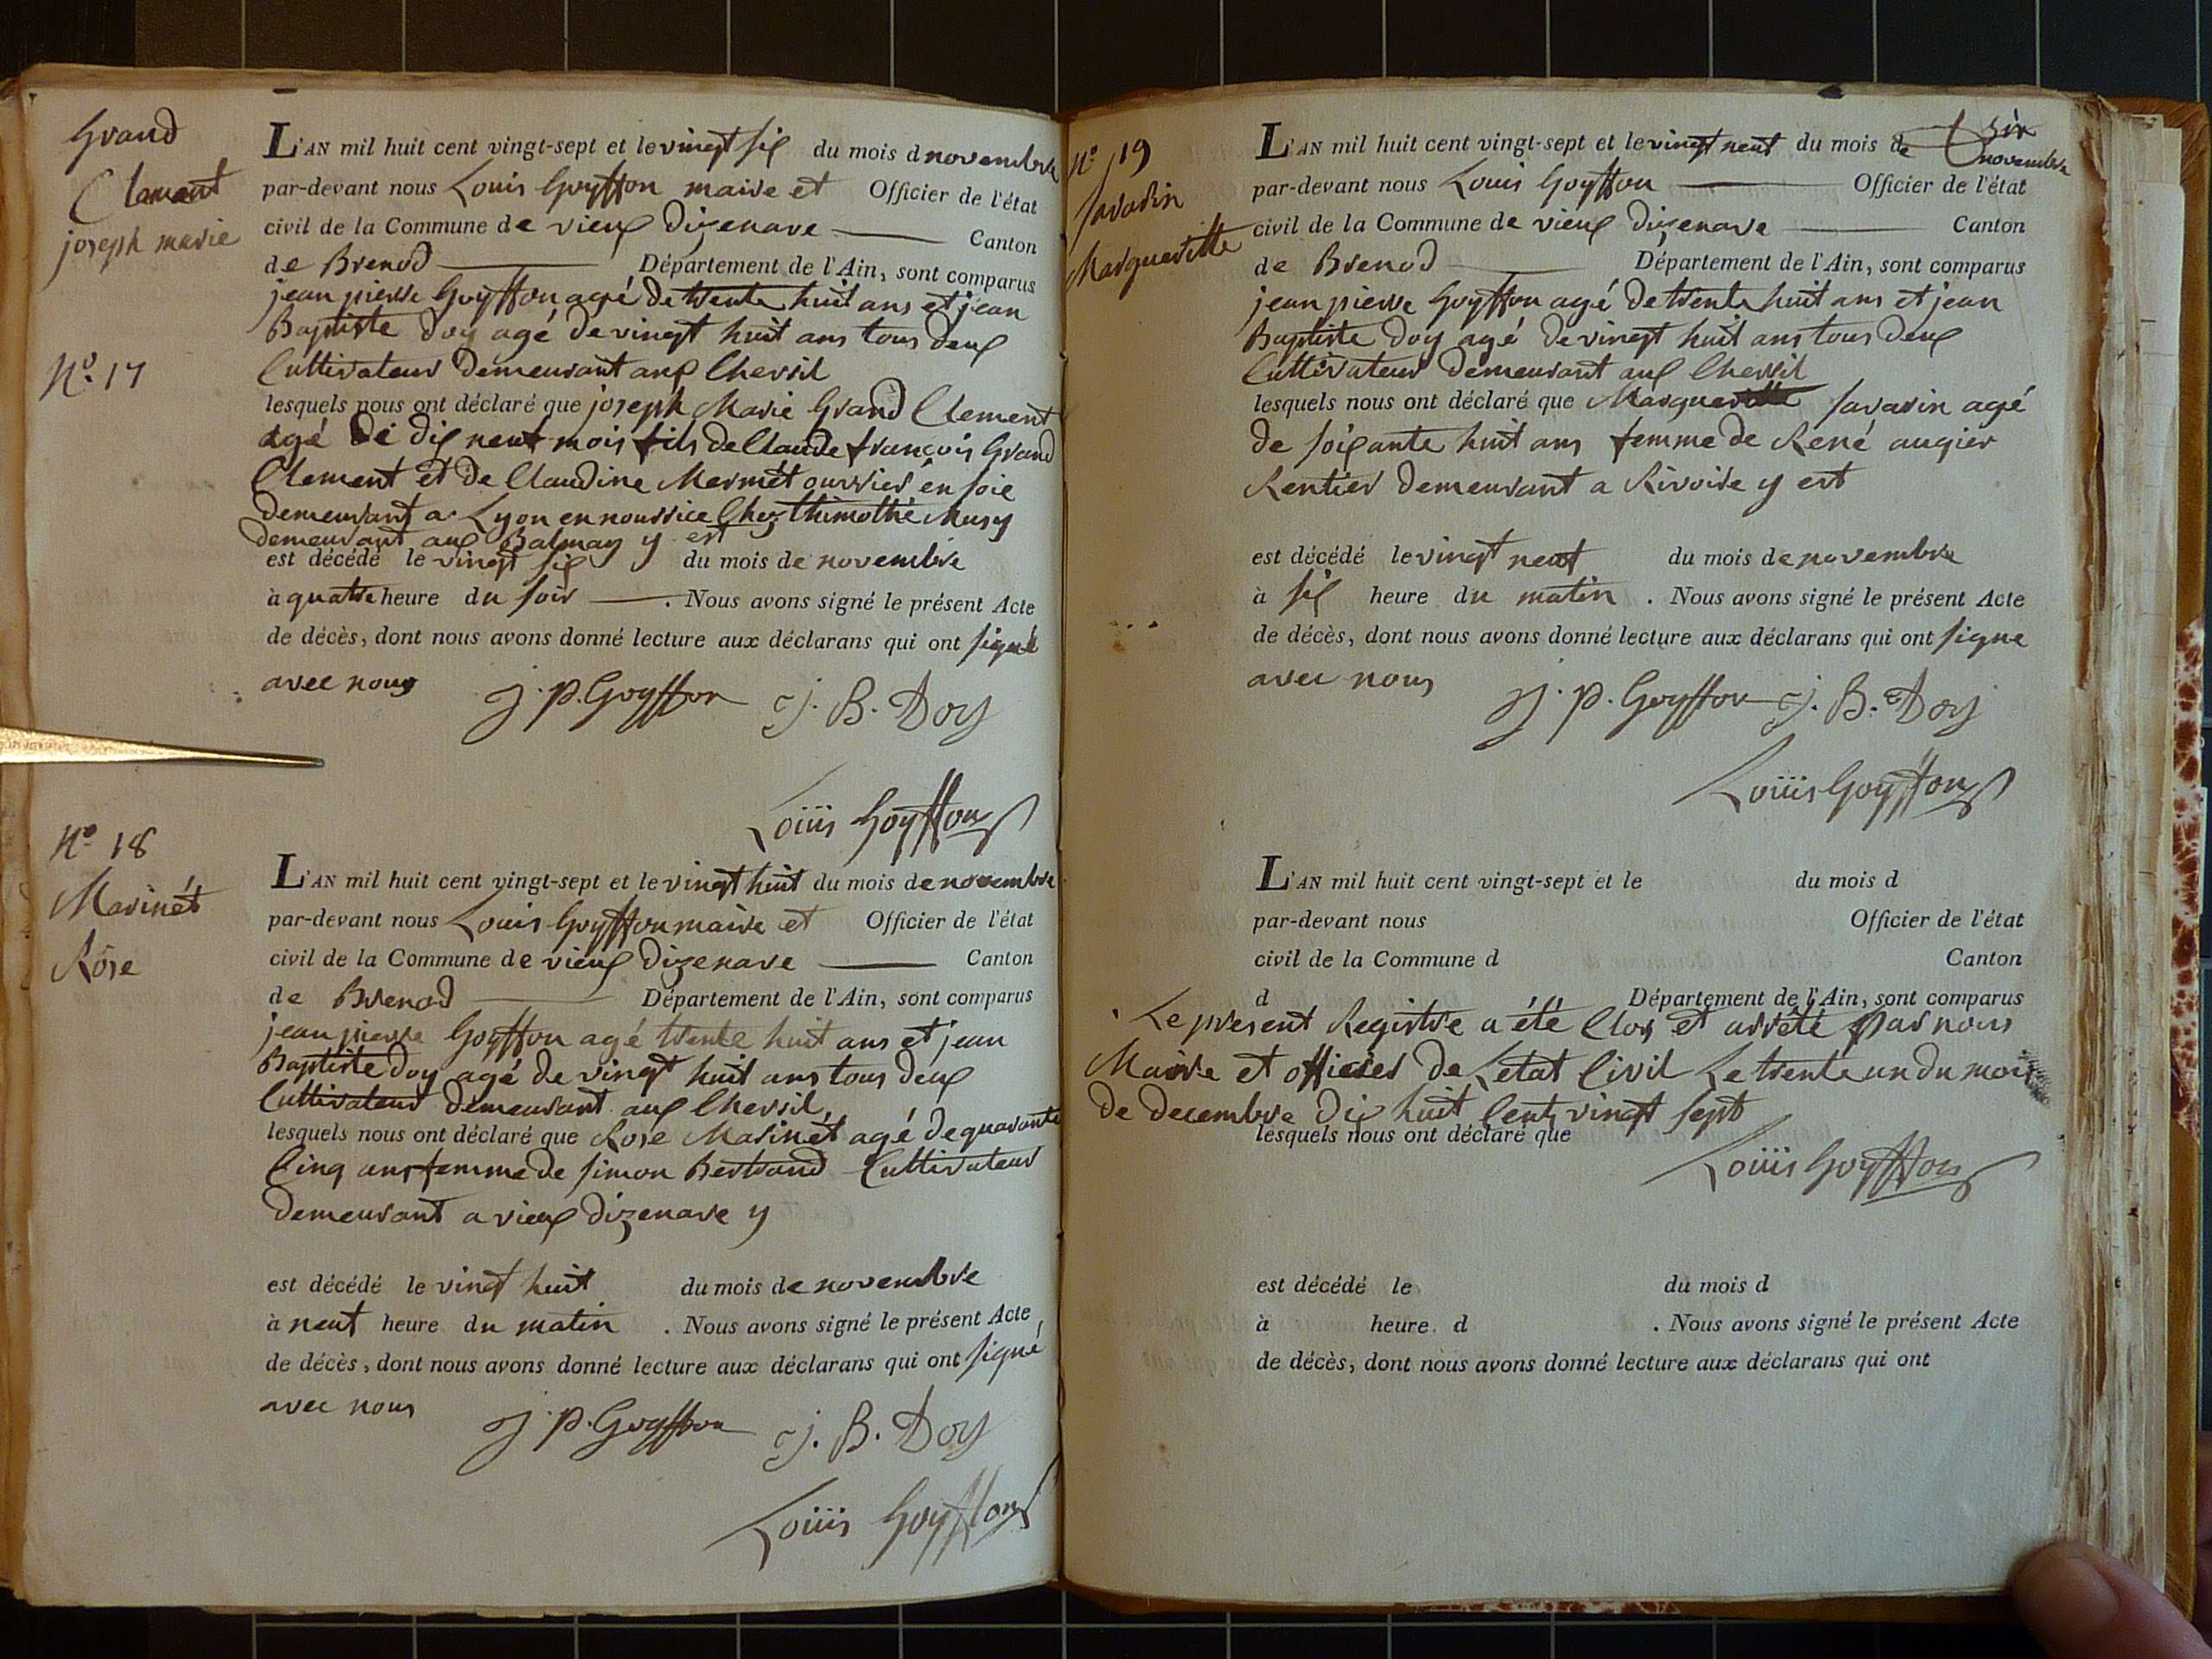 Grand
Clement
joseph marie
N.º 17
L'AN mil huit cent vingt-sept et le vingt six du mois d novembre
par-devant nous Louis Goyffon maire et Officier de l'état
civil de la Commune de vieux dizenave Canton
de Brenod Département de l'Ain, sont comparus
jean pierre Goyffon agé de trente huit ans et jean
Baptiste Doy agé de vingt huit ans tous deux
Cultivateur demeurant aux Chevril
lesquels nous ont déclaré que joseph Marie Grand Clement
agé de dix neuf mois fils de Claude françois Grand
Clement et de Claudine Mermét ouvrier én soie
demeurant a Lyon en nourrice Chez thimothé Musy
demeurant aux Balmay y est
est décédé le vingt six du mois de novembre
à quatre heure du soir . Nous avons signé le présent Acte
de décès, dont nous avons donné lecture aux déclarans qui ont signé
avec nous
J. P. Goyffon J. B. Doy
Louis Goyffon
N.º 18
Marinét
Rose
L'AN mil huit cent vingt-sept et le vingt huit du mois de novembre
par-devant nous Louis Goyffon maire et Officier de l'état
civil de la Commune de vieux dizenave Canton
de Brenod Département de l'Ain, sont comparus
jean pierre Goyffon agé trente huit ans et jean
Baptiste Doy agé de vingt huit ans tous deux
Cultivateur demeurant aux Chevril,
lesquels nous ont déclaré que Rose Marinét agé de quarante
Cinq ans femme de simon Bertrand Cultivateur
demeurant a vieux dizenave y
est décédé le vingt huit du mois de novembre
à neuf heure du matin . Nous avons signé le présent Acte
de décès, dont nous avons donné lecture aux déclarans qui ont signé
avec nous
J. P. Goyffon J. B. Doy
Louis Goyffon
N.º 19
savarin
Margueritte
L'AN mil huit cent vingt-sept et le vingt neuf du mois de novembre
par-devant nous Louis Goyffon Officier de l'état
civil de la Commune de vieux dizenave Canton
de Brenod Département de l'Ain, sont comparus
jean pierre Goyffon agé de trente huit ans et jean
Baptiste Doy agé de vingt huit ans tous deux
Cultivateur demeurant aux Chevril
lesquels nous ont déclaré que Margueritte savarin agé
de soixante huit ans femme de René augier
Rentier demeurant a Rivoire y est
est décédé le vingt neuf du mois de novembre
à six heure du matin . Nous avons signé le présent Acte
de décès, dont nous avons donné lecture aux déclarans qui ont signe
avec nous
J. P. Goyffon J. B. Doy
Louis Goyffon
L'AN mil huit cent vingt-sept et le du mois d
par-devant nous Officier de l'état
civil de la Commune d Canton
d Département de l'Ain, sont comparus
Le present Registre a été Clos et arrêté par nous
Maire et officier de L'etat Civil Le trente un du mois
de decembre dix huit Cent vingt sept
lesquels nous ont déclaré que
Louis Goyffon
est décédé le du mois d
à heure d . Nous avons signé le présent Acte
de décès, dont nous avons donné lecture aux déclarans qui ont